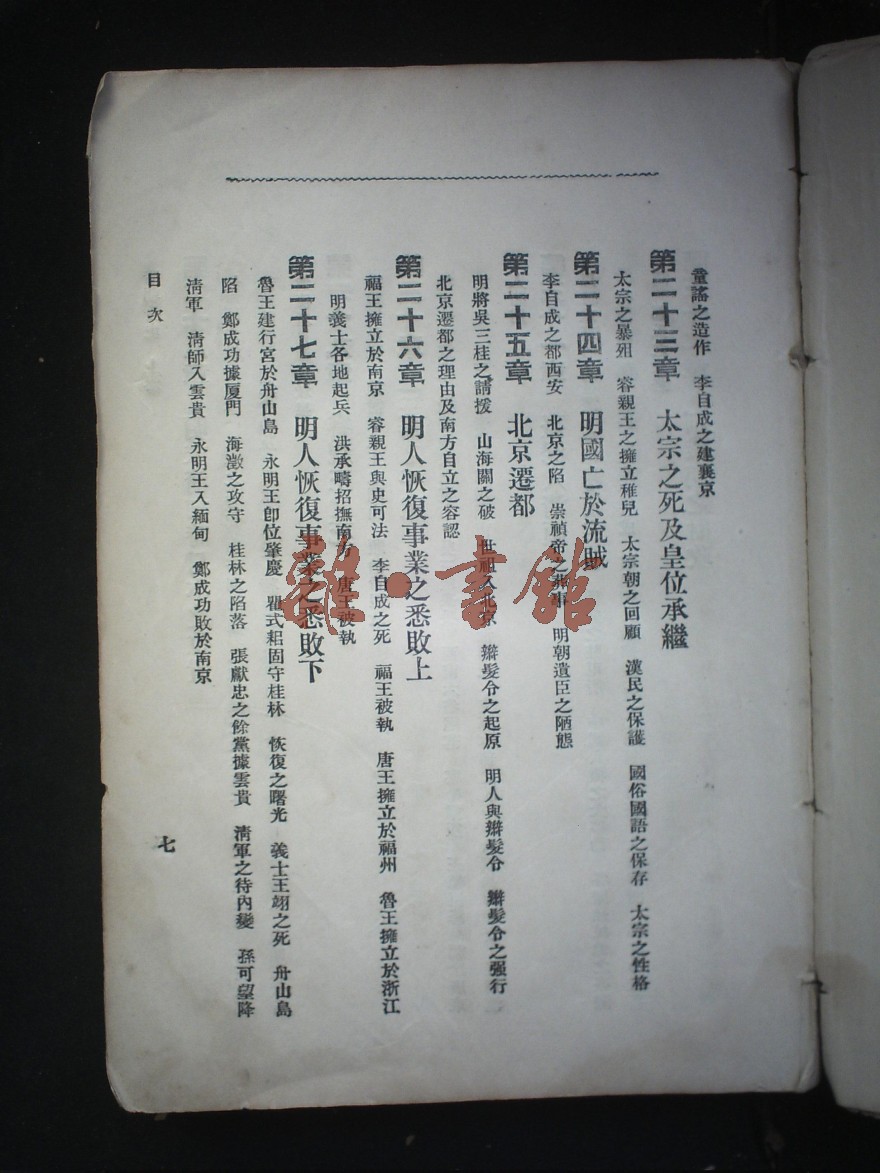 童謠之造作　李自成之建襄京
第二十三章　太宗之死及皇位承繼
太宗之暴殂　睿親王之擁立稚兒　太宗朝之回顧　漢民之保護　國俗國語之保存　太宗之性格
第二十四章　明國亡於流賊
李自成之都西安　北京之陷　崇禎帝之　事　明朝遺臣之陋態
第二十五章　北京遷都
明將吳三桂之請援　山海關之破　世祖入北京　辮髮令之起原　明人與辮髮令　辮髮令之强行
北京遷都之理由及南方自立之容認
第二十六章　明人恢復事業之悉敗上
福王擁立於南京　睿親王與史可法　李自成之死　福王被執　唐王擁立於福州　魯王擁立於浙江
明義士各地起兵　洪承疇招撫南方　唐王被執
第二十七章　明人恢復事業之悉敗下
魯王建行宮於舟山島　永明王卽位肇慶　瞿式耜固守桂林　恢復之曙光　義士王翊之死　舟山島
陷　鄭成功據厦門　海澂之攻守　桂林之陷落　張獻忠之餘黨據雲貴　淸軍之待內變　孫可望降
淸軍　淸師入雲貴　永明王入緬甸　鄭成功敗於南京
目次
七
雜·書館